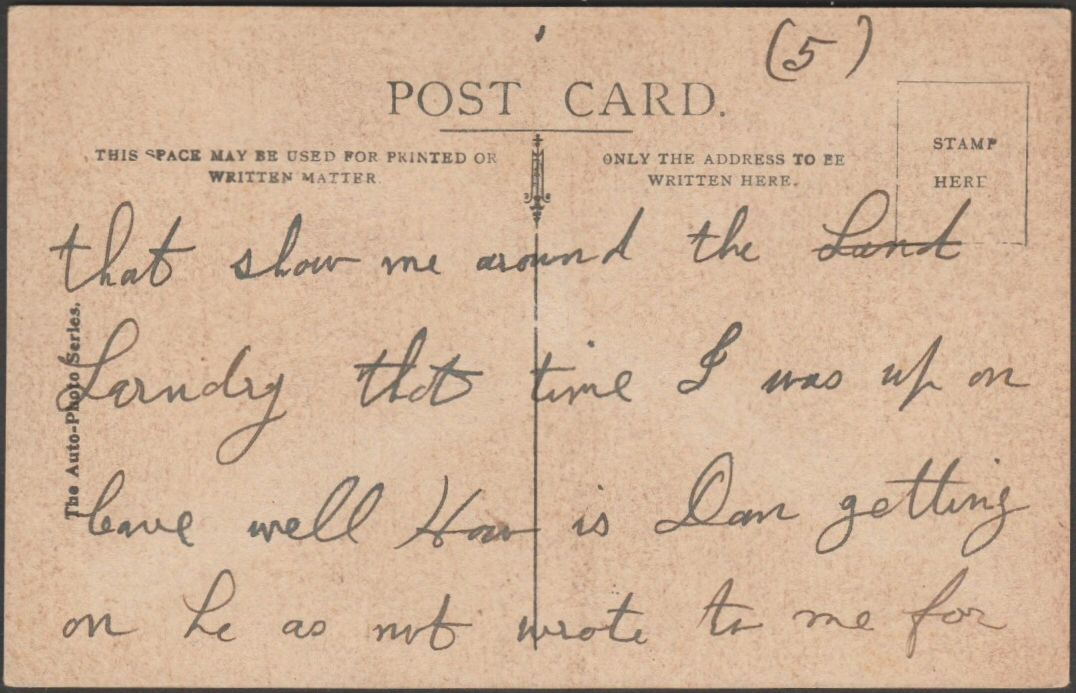 (5)
POST CARD.
THIS SPACE MAY BE USED FOR PRINTED OR
WRITTEN MATTER.
ONLY THE ADDRESS TO BE
WRITTEN HERE.
STAMP
HERE
The Auto-Photo Series.
that show me around the Land
Larndry that time I was up on
leave well How is Dan getting
on he as not wrote to me for